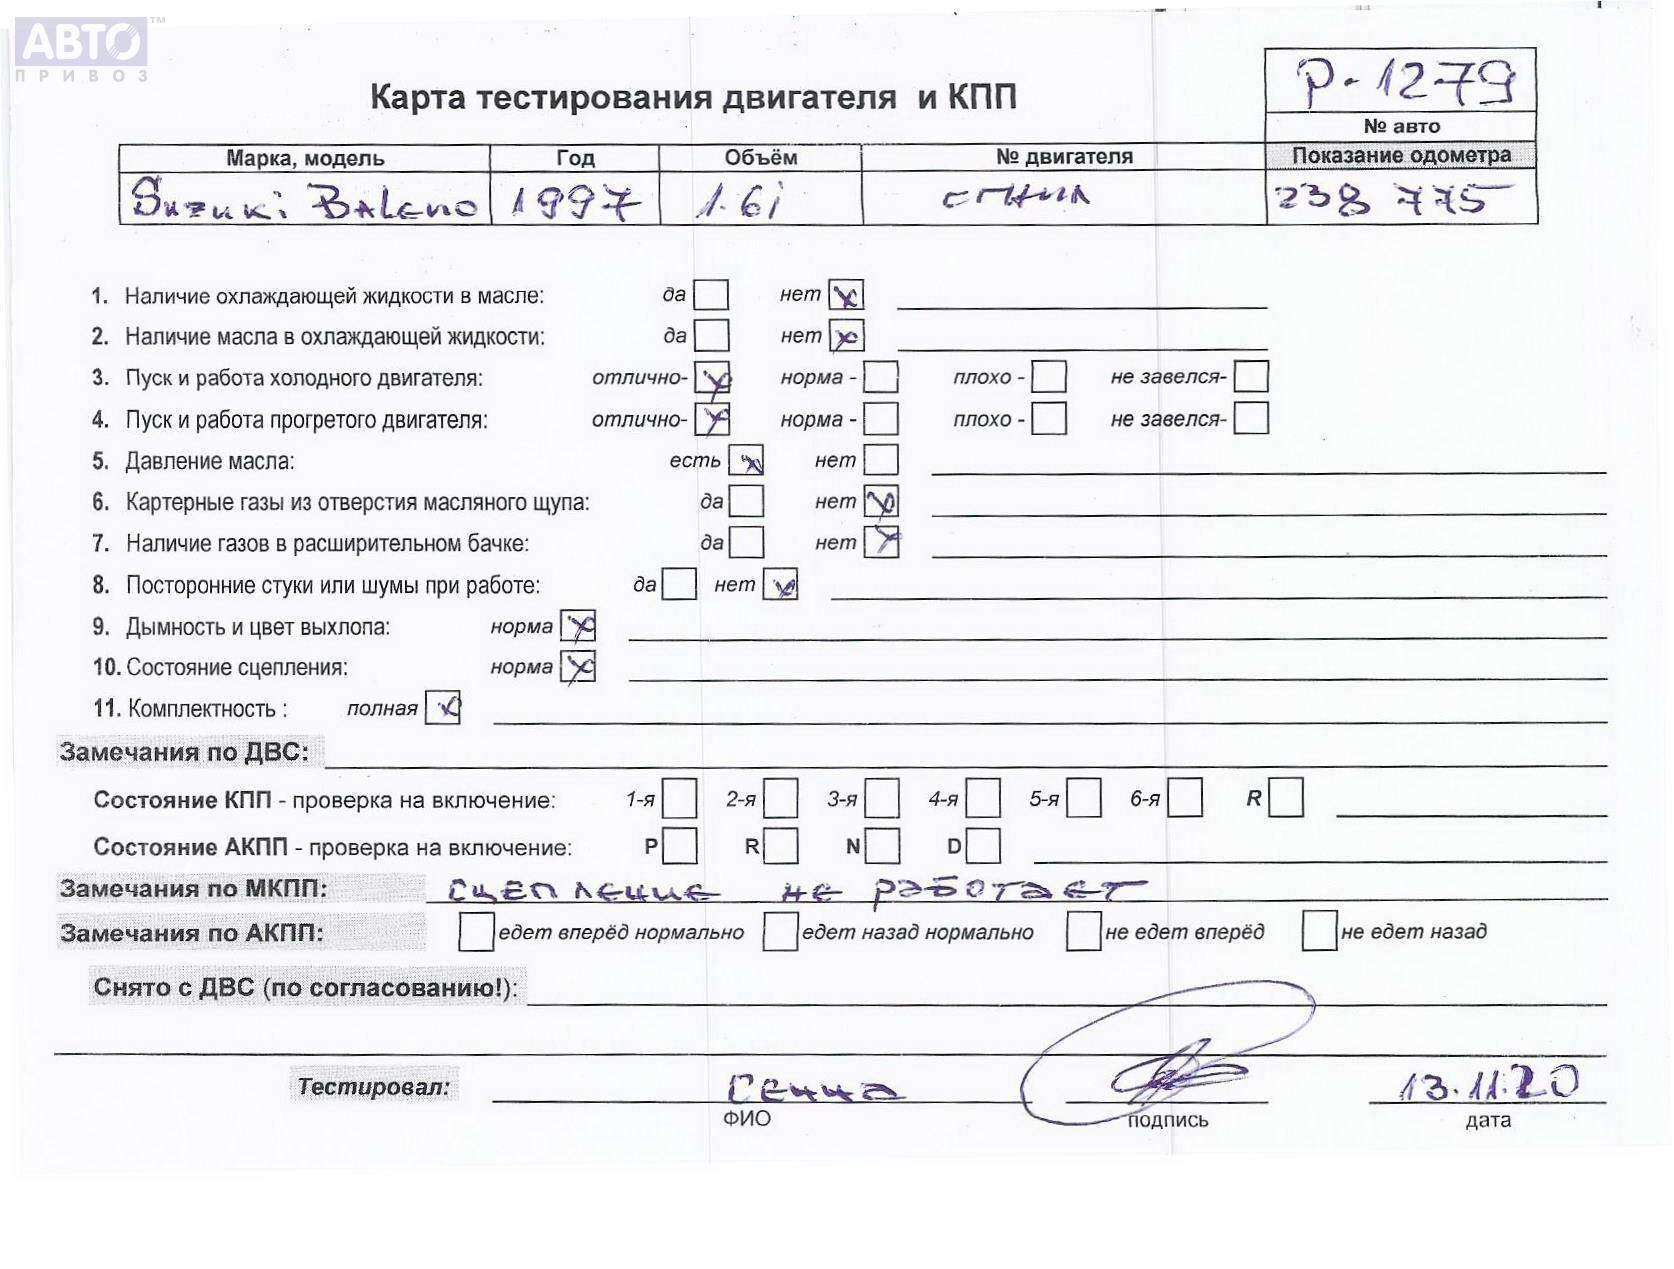 АВТО™
ПРИВОЗ
Р-1279
Карта тестирования двигателя и КПП
№ авто
Марка, модель Год Объём № двигателя Показание одометра
Suzuki BALeno 1997 1.6i сгнил 238 775
1. Наличие охлаждающей жидкости в масле: да нет x
2. Наличие масла в охлаждающей жидкости: да нет x
3. Пуск и работа холодного двигателя: отлично- x норма - плохо - не завелся-
4. Пуск и работа прогретого двигателя: отлично- x норма - плохо - не завелся-
5. Давление масла: есть x нет
6. Картерные газы из отверстия масляного щупа: да нет x
7. Наличие газов в расширительном бачке: да нет x
8. Посторонние стуки или шумы при работе: да нет x
9. Дымность и цвет выхлопа: норма x
10. Состояние сцепления: норма x
11. Комплектность : полная x
Замечания по ДВС:
Состояние КПП - проверка на включение: 1-я 2-я 3-я 4-я 5-я 6-я R
Состояние АКПП - проверка на включение: P R N D
Замечания по МКПП: сцепление не работает
Замечания по АКПП: едет вперёд нормально едет назад нормально не едет вперёд не едет назад
Снято с ДВС (по согласованию!):
Тестировал: Сенна 13.11.20
ФИО подпись дата